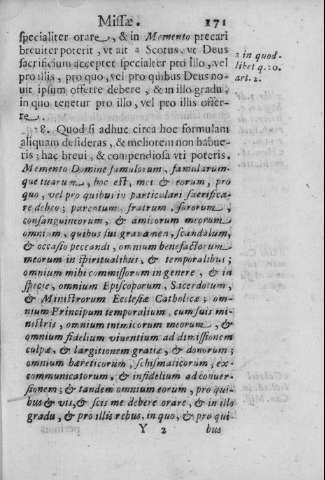 Missæ. 171
specialiter orare, & in Memento precari
breuiter poterit, vt ait a Scotus, vt Deus
sacrificium acceptet specialiter pro illo, vel
pro illis, pro quo, vel pro quibus Deus no-
uit ipsum offerre debere, & in illo gradu,
in quo tenetur pro illo, vel pro illis offer-
re.
a in quod-
libet q. 20.
art. 2.
8. Quod si adhuc circa hoc formulam
aliquam desideras, & meliorem non habue-
ris: hac breui, & compendiosa vti poteris.
Memento Domine famulorum, famularum-
que tuarum, hoc est, mei & eorum, pro
quo, vel pro quibus in particulari sacrifica-
re debeo; parentum, fratrum, sororum,
consanguineorum, & amicorum meorum
omnium, quibus fui grauamen, scandalum,
& occasio peccandi, omnium benefactorum
meorum in spiritualibus, & temporalibus;
omnium mihi commissorum in genere, & in
specie, omnium Episcoporum, Sacerdotum,
& Ministrorum Ecclesiæ Catholicæ; om-
nium Principum temporalium, cum suis mi-
nistris, omnium inimicorum meorum, &
omnium fidelium viuentium ad dimissionem
culpæ, & largitionem gratiæ, & donorum;
omnium hæreticorum, schismaticorum, ex-
communicatorum, & infidelium ad conuer-
sionem; & tandem omnium eorum, pro qui-
bus & vis, & scis me debere orare, & in illo
gradu, & pro illis rebus, in quo, & pro qui-
Y 2 bus